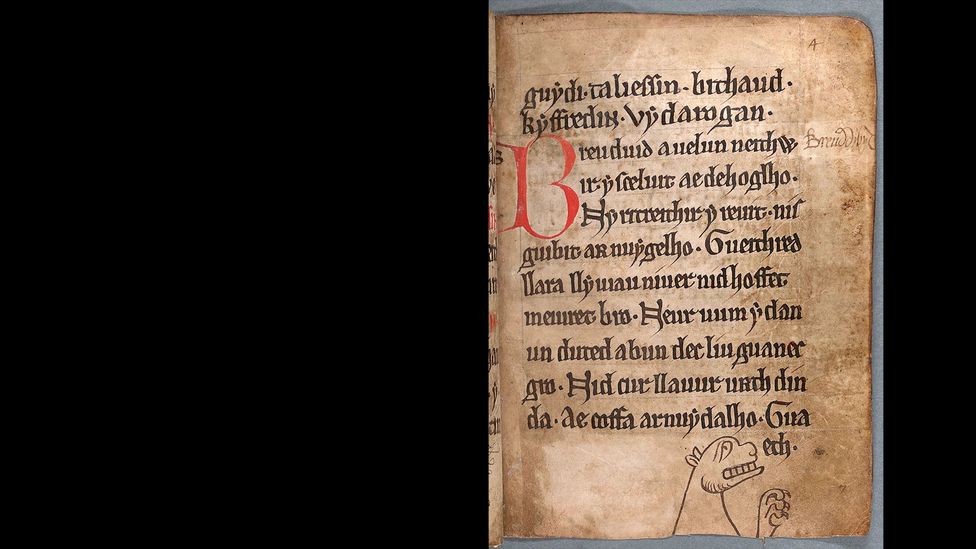 4
guẏdi · taliessin · bithaud ·
kẏffredin · vẏ darogan ·
Breuduid a uelun neithw
ir · ẏ sceluit ae dehoglho ·
Nẏ ritreithir ẏ reuit · nis
guibit ar nuẏgelho · Gueithred
llara llẏuiau niuer nid hoffet
meiuret bro · Neur uum ẏ dan
un duted a bun dec liu guanec
gro · Nid cur llauur urth din
da · Ae coffa ar nuẏ dalho · Gua
ech ·